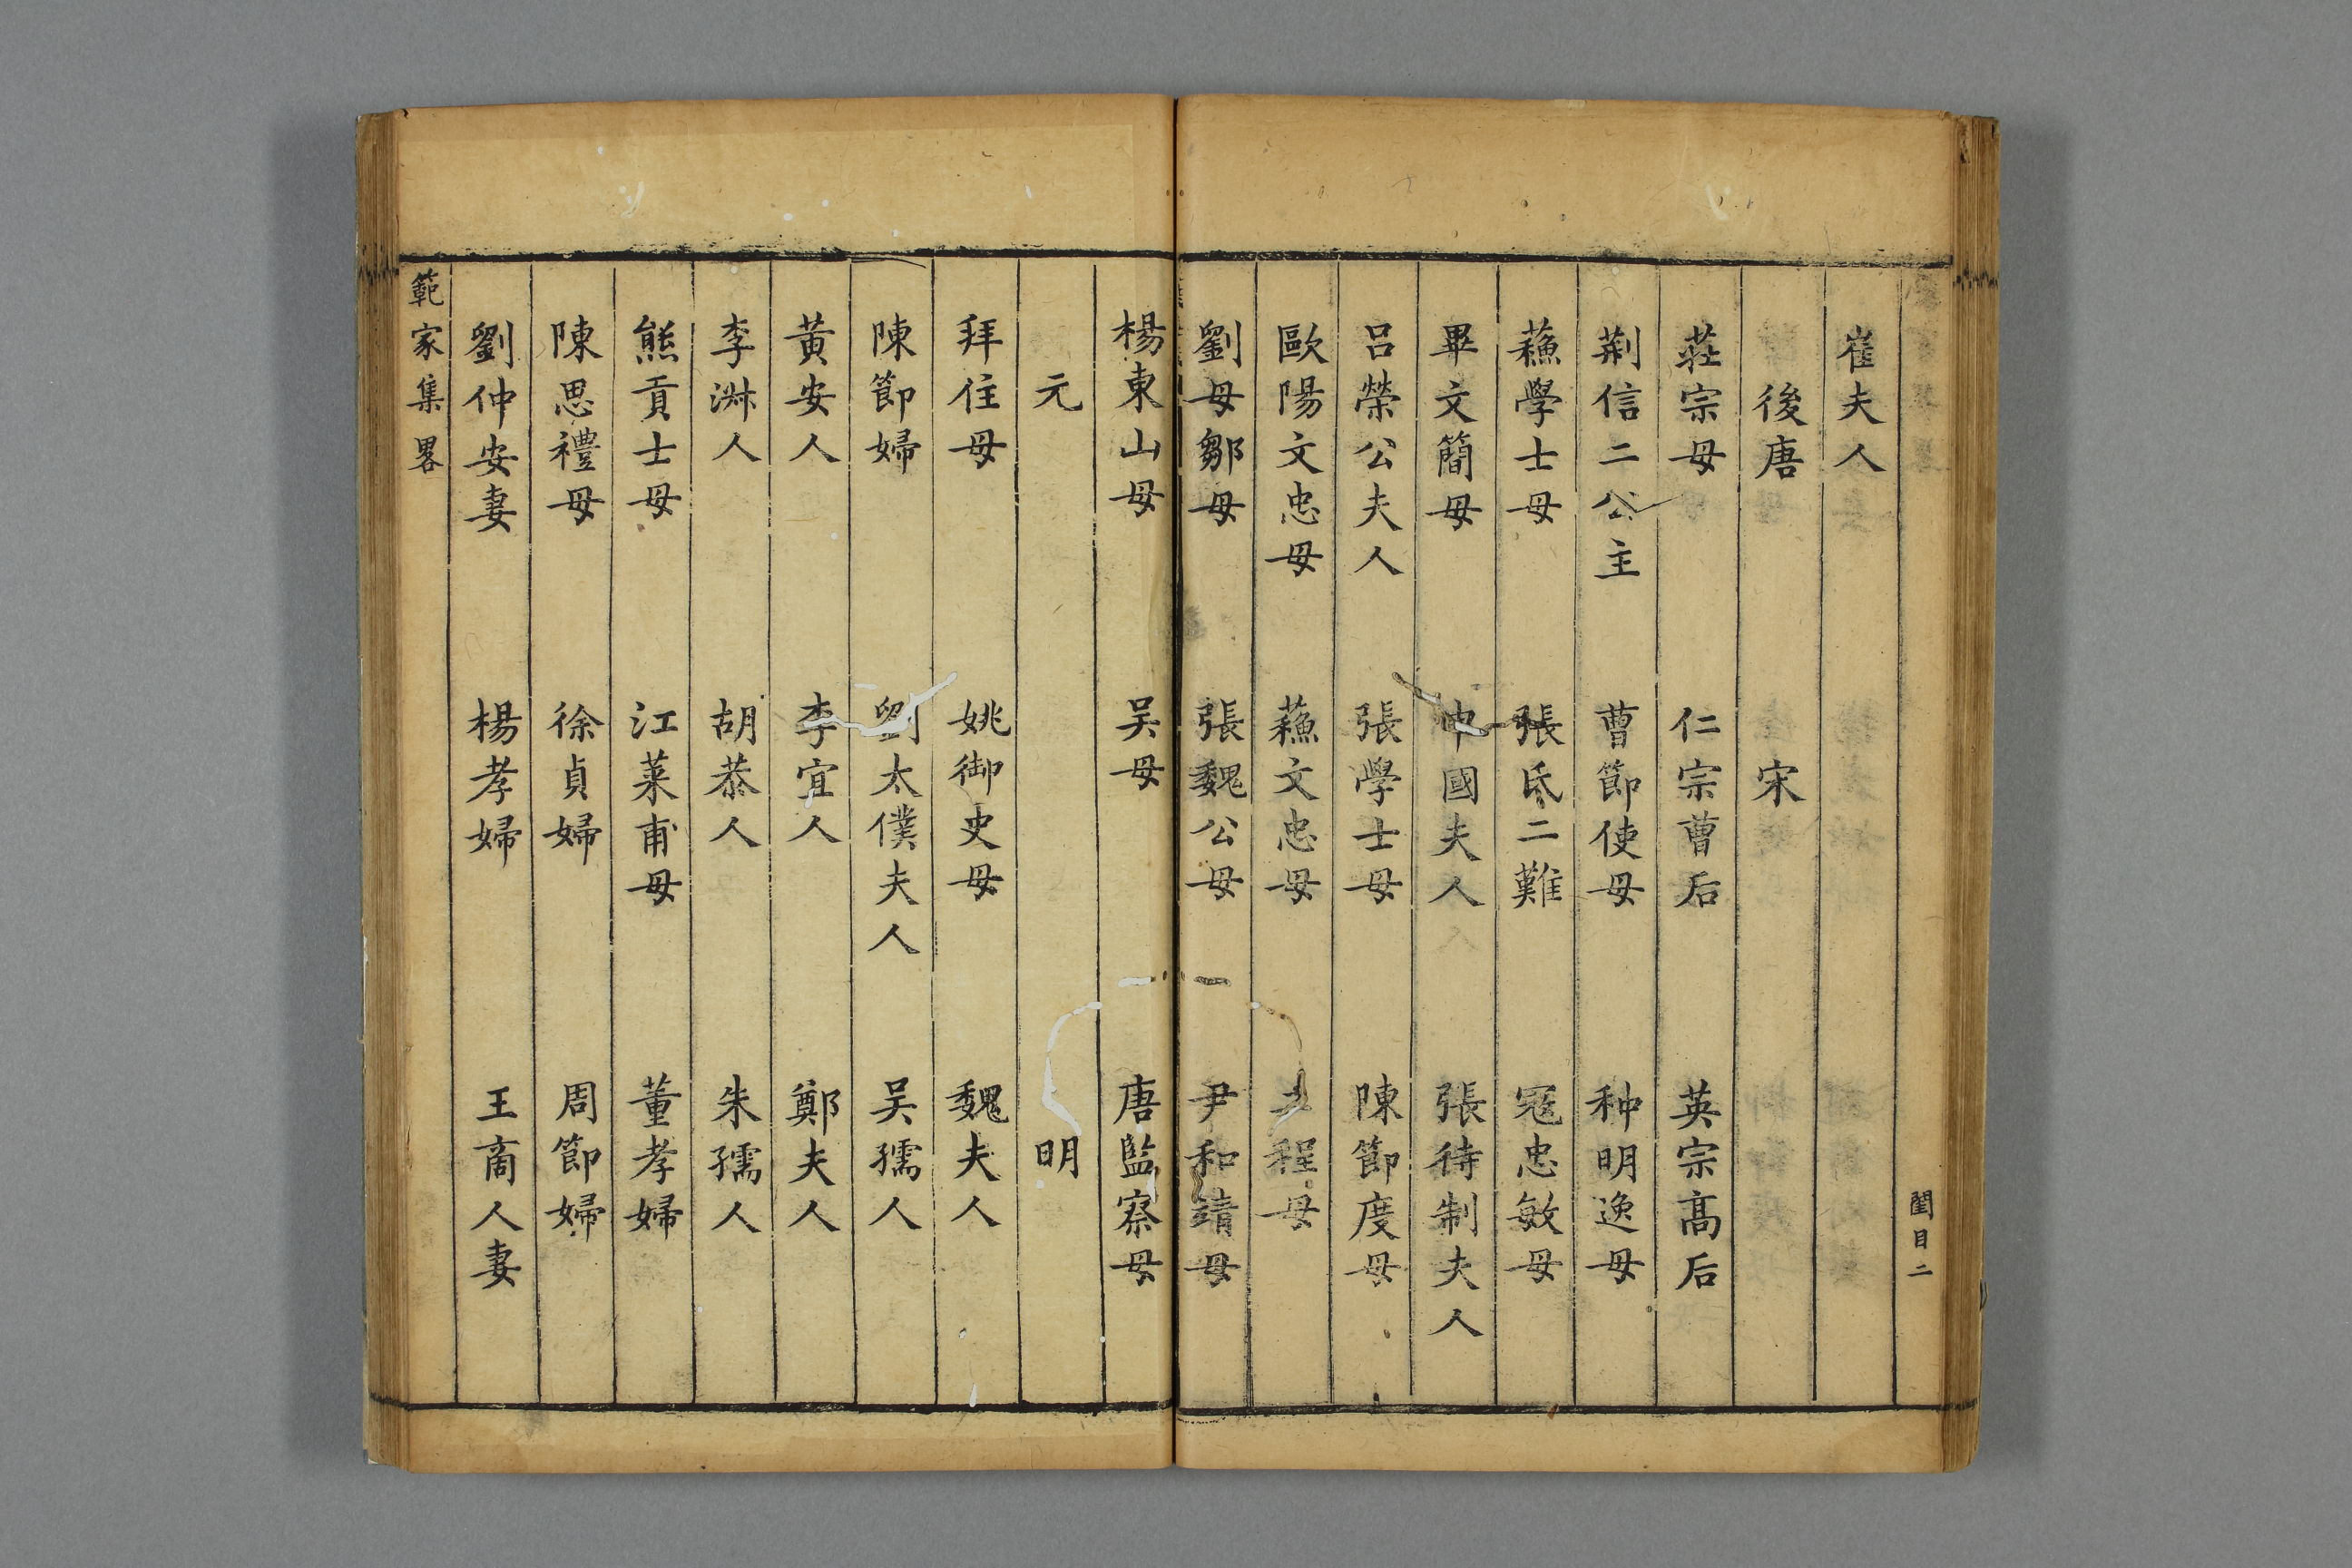 閨目二
崔夫人
後唐 宋
莊宗母 仁宗曹后 英宗髙后
荆信二公主 曹節使母 种明逸母
蘓學士母 張氏二難 冦忠敏母
畢文簡母 申國夫人 張待制夫人
呂榮公夫人 張學士母 陳節度母
歐陽文忠母 蘓文忠母 二程母
劉母鄒母 張魏公母 尹和靖母
楊東山母 吴母 唐監察母
元 明
拜住母 姚御史母 魏夫人
陳節婦 劉太僕夫人 吴孺人
黃安人 李宜人 鄭夫人
李淑人 胡恭人 朱孺人
熊貢士母 江菉甫母 董孝婦
陳思禮母 徐貞婦 周節婦
劉仲安妻 楊孝婦 王商人妻
範家集畧